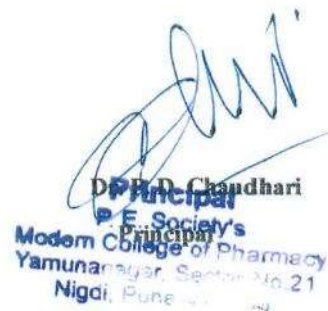 Dr. P. D. Chaudhari
Principal
P. E. Society's
Principal
Modern College of Pharmacy
Yamunanagar, Sector No.21
Nigdi, Pune